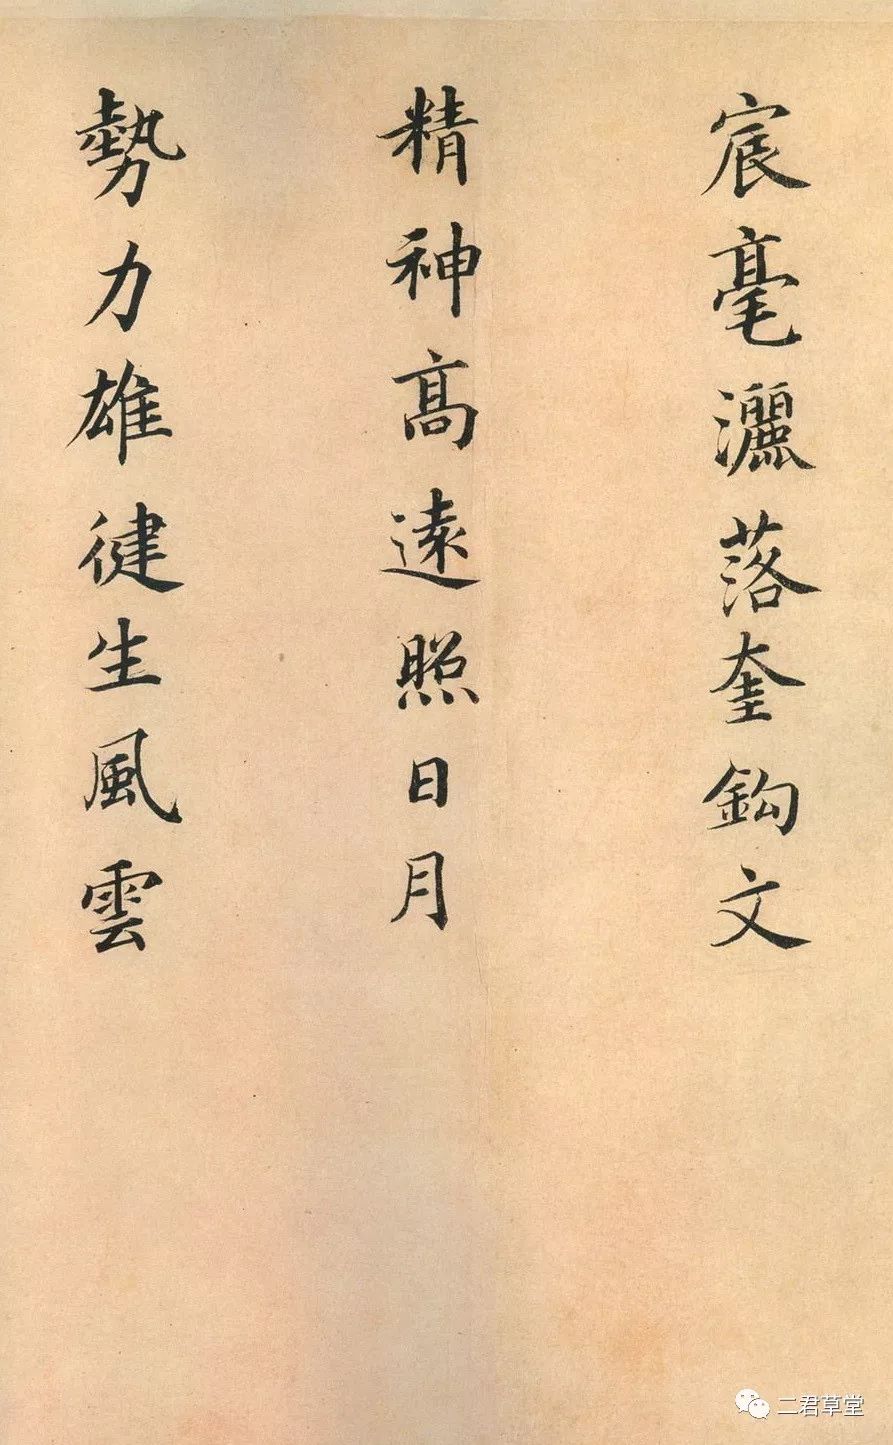 宸毫灑落奎鈎文
精神髙遠照日月
勢力雄徤生風雲
二君草堂